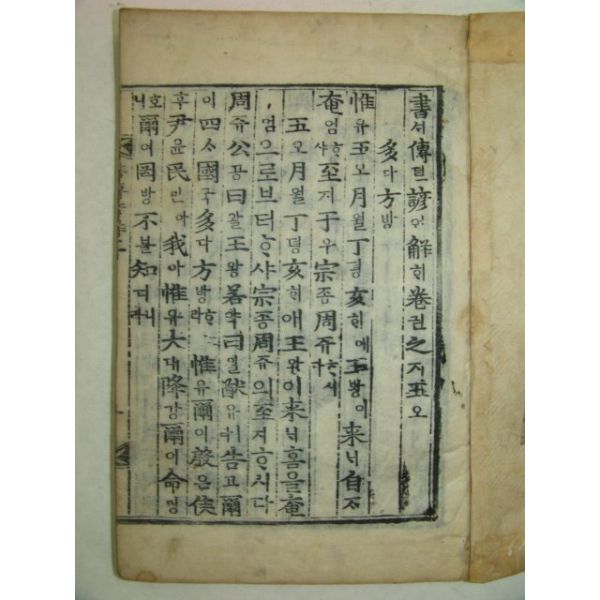 書셔傳뎐諺언解ᄒᆡ卷권之지五오
多다方방
惟유五오月월丁뎡亥ᄒᆡ예王왕이来ᄅᆡ自ᄌᆞ
奄엄ᄒᆞ샤至지于우宗종周쥬ᄒᆞ시다
五오月월丁뎡亥ᄒᆡ애王왕이来ᄅᆡ홈을奄
엄으로브터ᄒᆞ샤宗종周쥬의至지ᄒᆞ시다
周쥬公공曰왈王왕若약曰왈猷유ㅣ라告고爾
이四ᄉᆞ國국多다方방ᄒᆞ라惟유爾이殷은侯
후尹윤民민아我아惟유大대降강爾이命명
호니爾이罔망不블知디니라